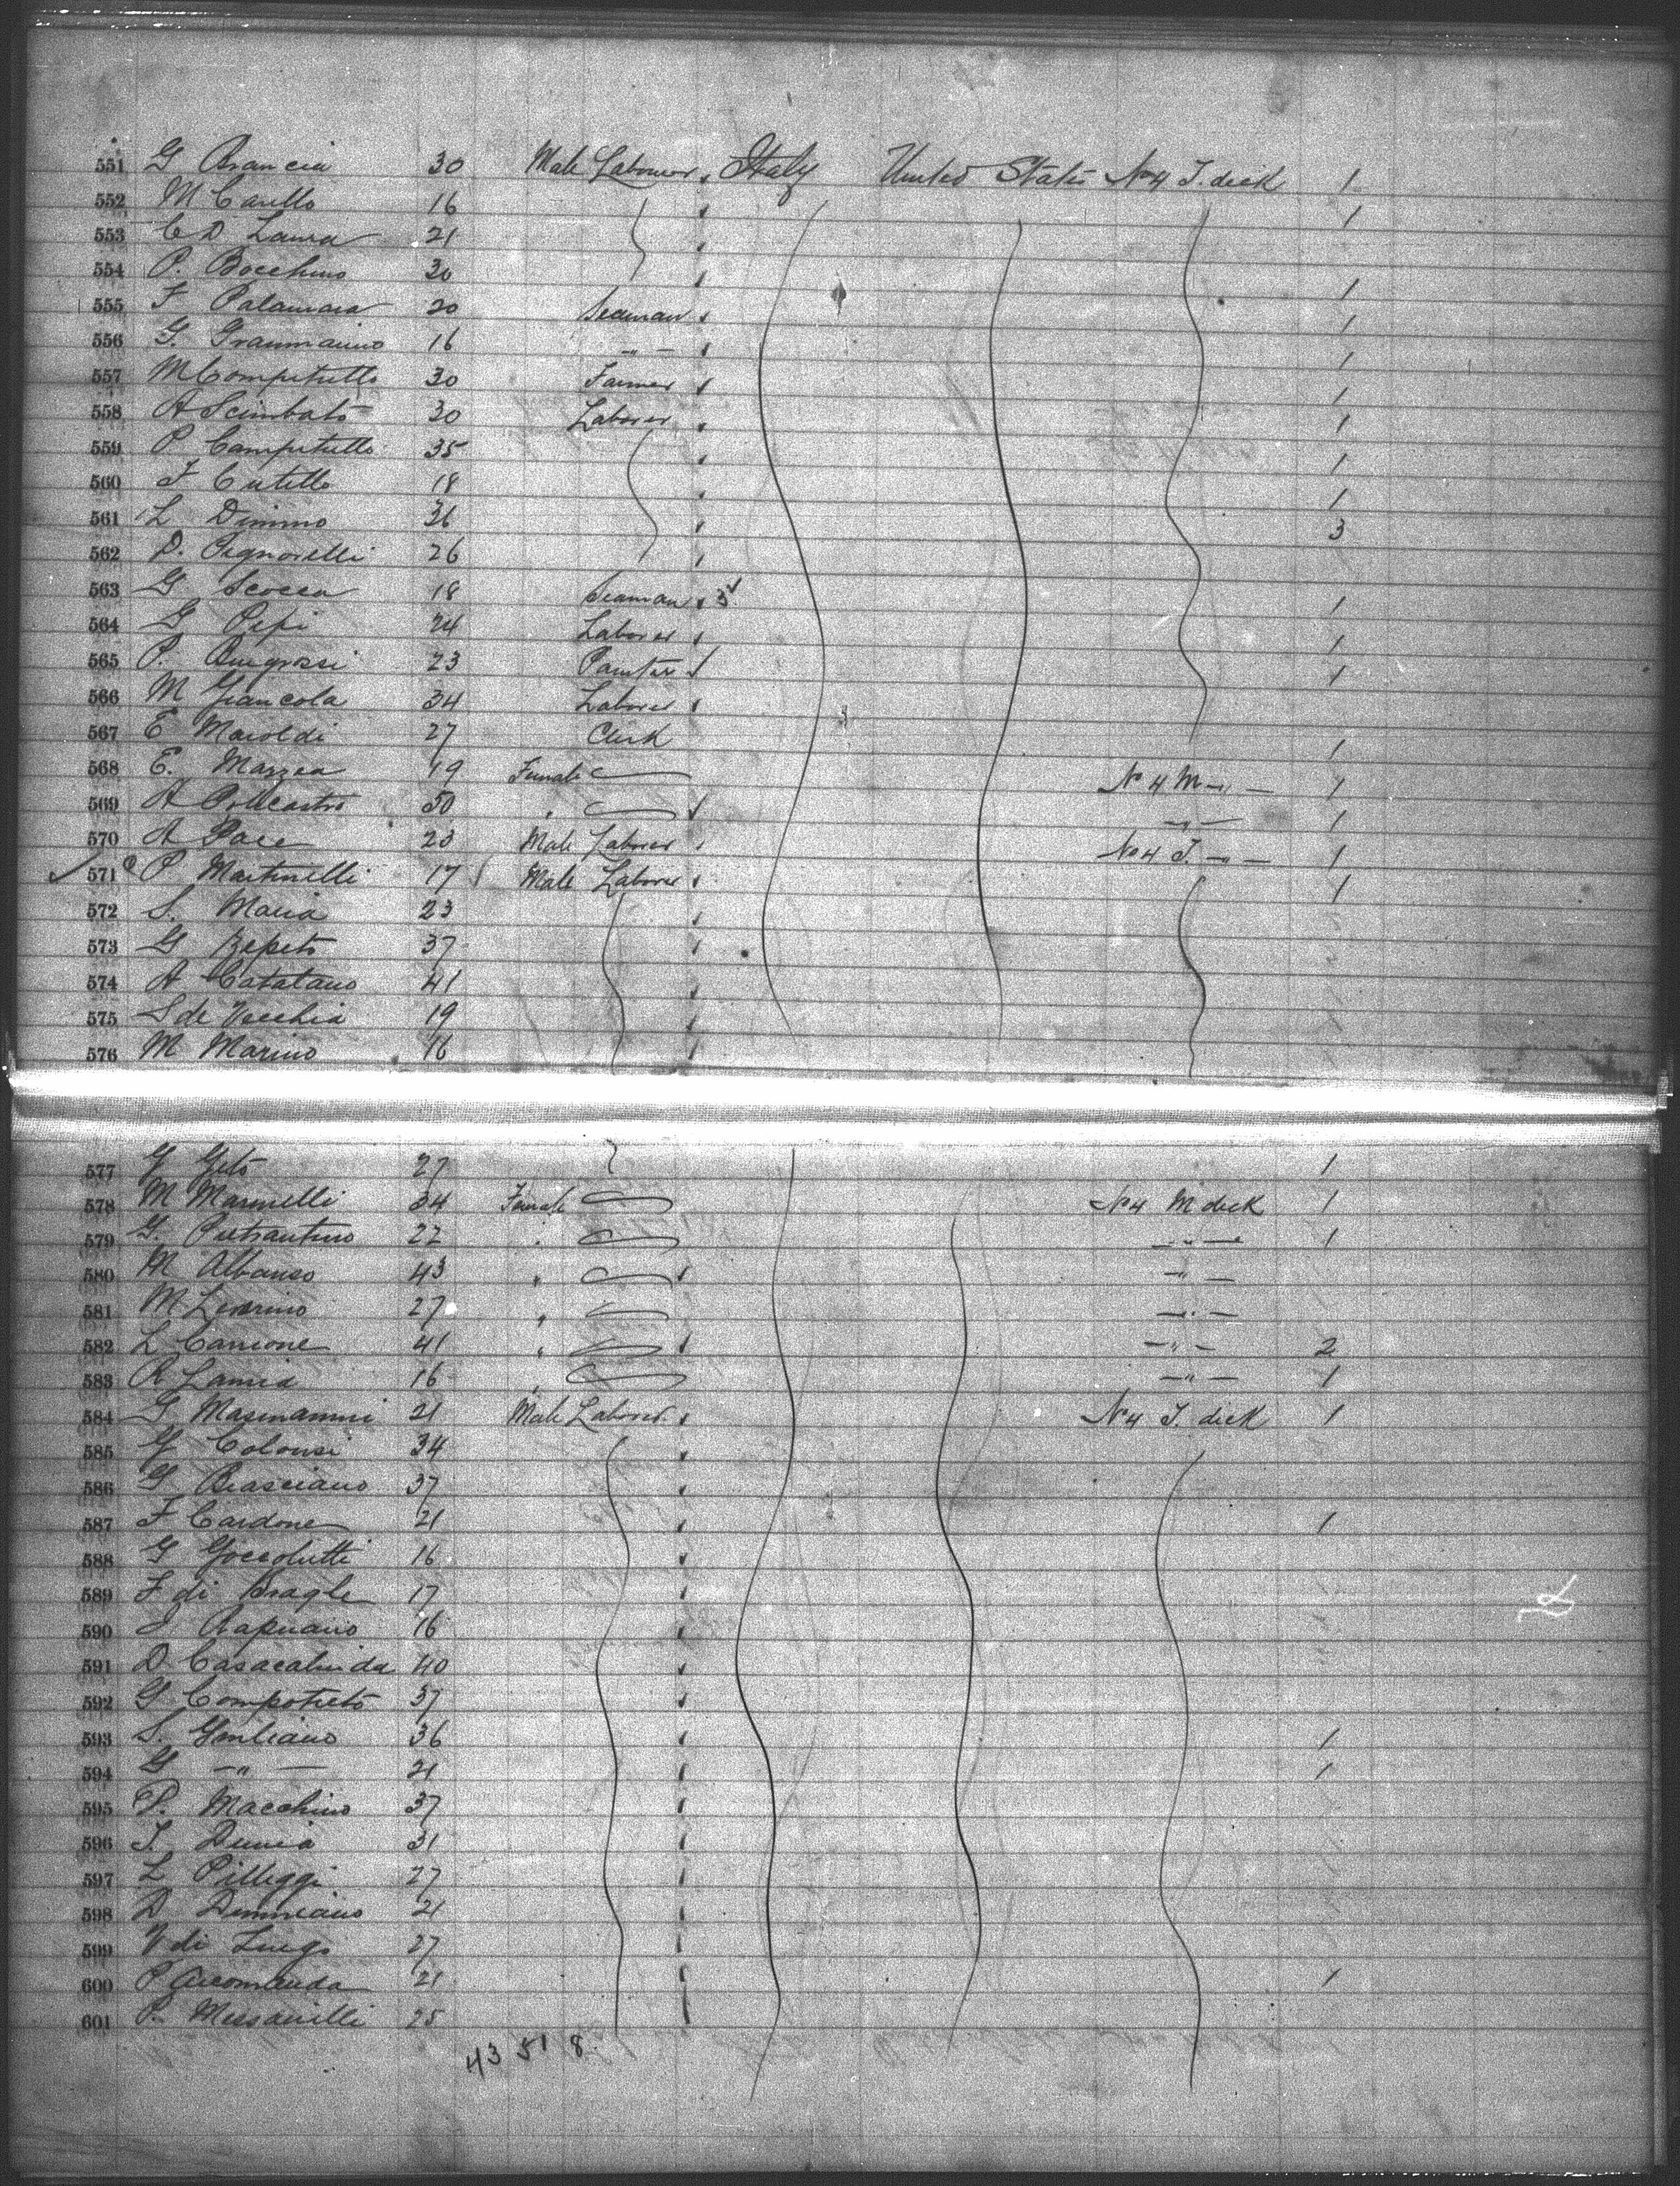 551 G Brancia 30 Male Labourer Italy United States No 4 T. deck 1
552 M Carillo 16 1
553 C D Laura 21
554 P. Bocchino 30 1
555 F Palamara 20 Seaman 1
556 G. Granmaino 16 — " — 1
557 M Compitello 30 Farmer 1
558 A Scimbato 30 Laborer 1
559 P Campitello 35 1
560 F Cutillo 18 1
561 L Dimmo 36 3
562 D. Pignorelli 26
563 G Scocca 18 Seaman 3 1
564 G Pepi 24 Laborer 1
565 P. 23 Painter 1
566 M Giancola 34 Laborer
567 E Maroldi 27 Clerk 1
568 E. Mazzea 19 Female No 4 M — " — 1
569 A Policastro 50 " — " — 1
570 A Pace 23 Male Laborer No 4 T. — " — 1
571 P Martinelli 17 Male Laborer 1
572 S. Maria 23
573 G Zepeto 37
574 A Catalano 41
575 S de Vecchia 19
576 M Marino 16
577 G Geto 27 1
578 M Marinelli 34 Female No 4 M deck 1
579 G. Pietrantino 22 " — " — 1
580 M Albanso 43 " — " —
581 M 27 " — " —
582 L Carrione 41 " — " — 2
583 R Lamia 16 " — " — 1
584 G Masinanni 21 Male Laborer No 4 T. deck 1
585 G Colonsi 34
586 G Brasciano 37
587 F Cardone 21 1
588 G Goccolutti 16
589 F di Bragle 17
590 J Rapuano 16
591 D Casacalenda 40
592 G Compotieto 37
593 S. Giuliano 36 1
594 G — " — 21 1
595 P. Macchino 37
596 T. 31
597 L Pilleggi 27
598 D Dimmiano 21
599 V di Luigi 27
600 P Arcomanda 21 1
601 P. Messanilli 25
43 51 8.